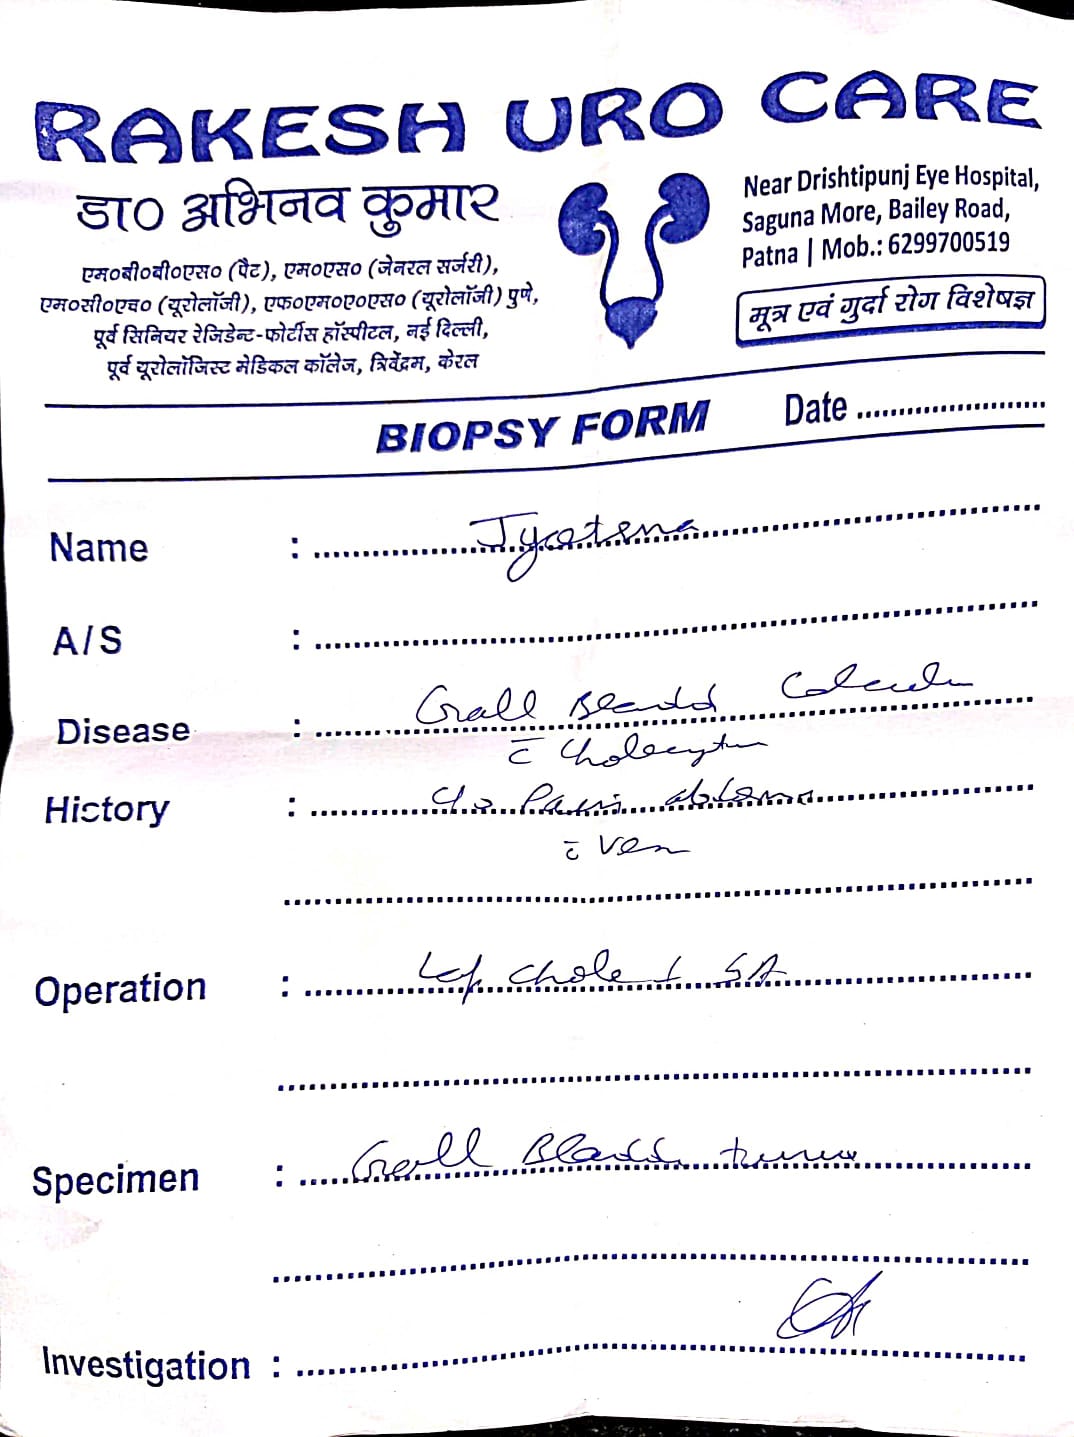 RAKESH URO CARE
डा० अभिनव कुमार
एम०बी०बी०एस० (पैट), एम०एस० (जेनरल सर्जरी),
एम०सी०एच० (यूरोलॉजी), एफ०एम०ए०एस० (यूरोलॉजी) पुणे,
पूर्व सिनियर रेजिडेन्ट-फोर्टीस हॉस्पीटल, नई दिल्ली,
पूर्व यूरोलॉजिस्ट मेडिकल कॉलेज, त्रिवेंद्रम, केरल
Near Drishtipunj Eye Hospital,
Saguna More, Bailey Road,
Patna | Mob.: 6299700519
मूत्र एवं गुर्दा रोग विशेषज्ञ
BIOPSY FORM Date
Name : Jyotsna
A/S :
Disease : Gall Bladd Calculu
c̄ Cholecyst
Hictory : c/o Pain abdome
c̄
Operation : Lap chole SA
Specimen : Gall Bladd
Investigation :